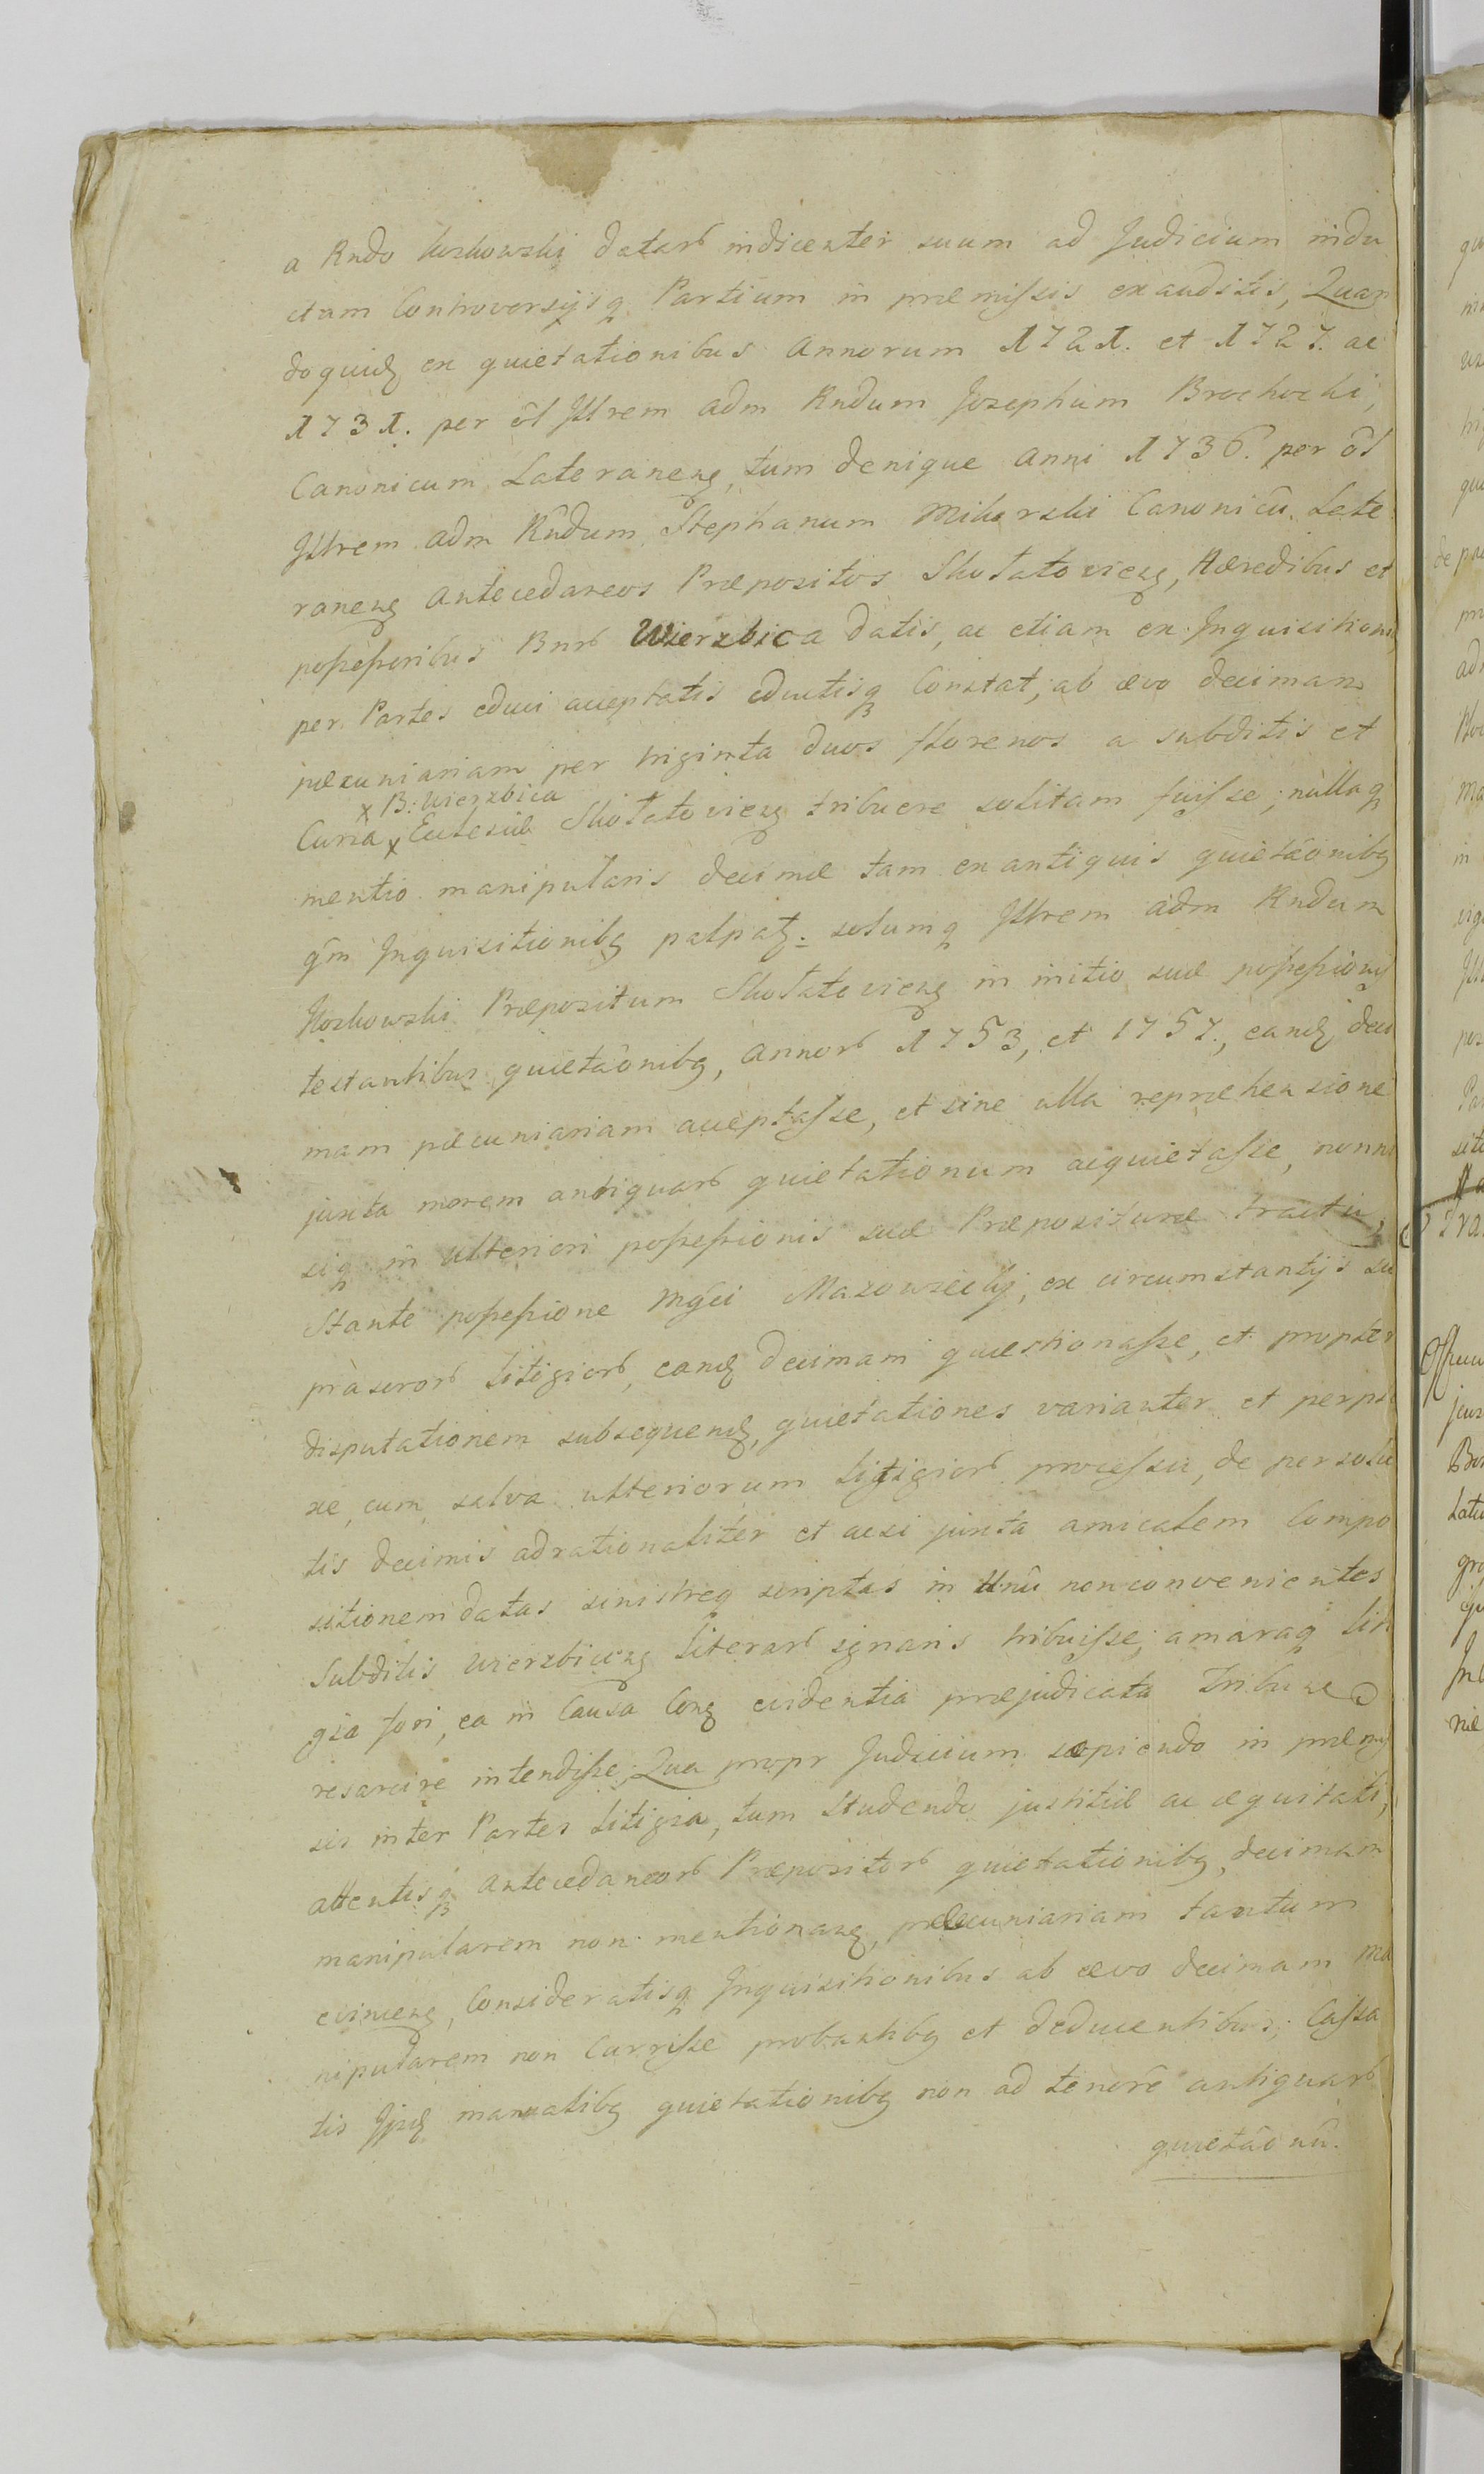 a Rndo Koszkowski datarb indicenter suum ad Judicium indu
ctam Controversijsq Partium in præmissis exauditis, Quan
doquid ex quietationibus Annorum 1721. et 1727. ac
1731. per ol Jllrem adm Rndum Josephum Brochocki,
Canonicum Lateraneng, tum denique Anni 1736. per ol
Jllrem adm Rndum Stephanum Mikorski Canonicũ Late
raneng Antecedaneos Præpositos Skotatovieng, Hæredibus et
possessoribus Bnrb Wierzbica datis, ac etiam ex Jnquisitioni
per Partes educi acceptatis eductisq Constat, ab ævo decimam
pæcuniariam per triginta duos florenos a subditis et
x B: Wierzbica
Curia x Ecclesiæ Skotatovieng tribuere solitam fuisse; nullaq
mentio manipularis decimæ tam ex antiquis quietãonibg
qm Jnquisitionibg palpat. solumq Jllrem adm Rndum
Koszkowski Præpositum Skotatovieng in initio suæ possessionis
testantibus quietãonibg, Annorb 1753, et 1757., eand deci
mam pæcuniariam acceptasse, et sine ulla repræhensione
juxta morem antiquarb quietationum acquietasse, nonni
siq in ulteriori possessionis suæ Præpositurae tractu,
Stante possessione Mgci Mazowiecky, ex circumstantijs su
præsorb litigiorb, eand decimam quæstionasse, et propter
disputationem subsequend, quietationes varianter et perple
xe, cum salva ulteriorum litigiorb processu, de persolu
tis decimis adrationaliter et acsi juxta amicalem Compo
sitionem datas sinistreq scriptas in Unũ nonconvenientes
Subditis Wierzbiceng literarb ignaris tribuisse; amaraq liti
gia fori, ea in Causa Cong evidentia præjudicata
resarcire intendisse, Qua propr Judicium sopiendo in præmis
sis inter Partes litigia, tum studendo justitiæ ac æquitati,
attentisq antecedaneorb Præpositorb quietationibg, decimam
manipularem non mentionang, pæcuniariam tantum
evinceng, Consideratisq Jnquisitionibus ab ævo decimam ma
nipularem non Currisse probantibg et deducentibus; Cassa
tis Jisd manualibg quietationibg non ad tenorẽ antiquarb
quietãonũ.